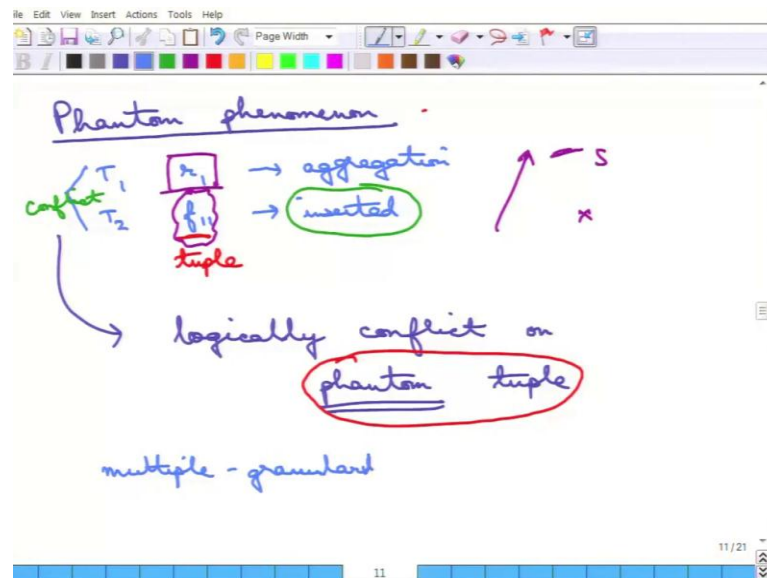 ile Edit View Insert Actions Tools Help
Page Width
B I
Phantom phenomenon
T1 r1 → aggregation S
conflict
T2 f11 → inserted x
tuple
logically conflict on
phantom tuple
multiple - granulard
11/21
11